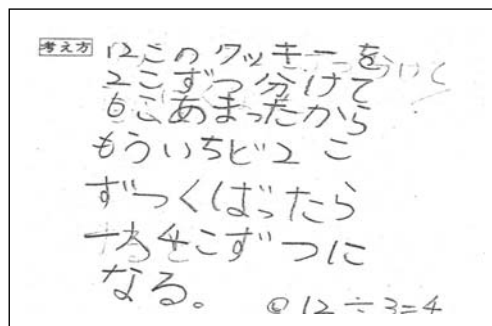 考え方 12このクッキーを
2こずつ分けて
6こあまったから
もういちど2こ
ずつくばったら
一人4こずつに
なる。 @12÷3=4